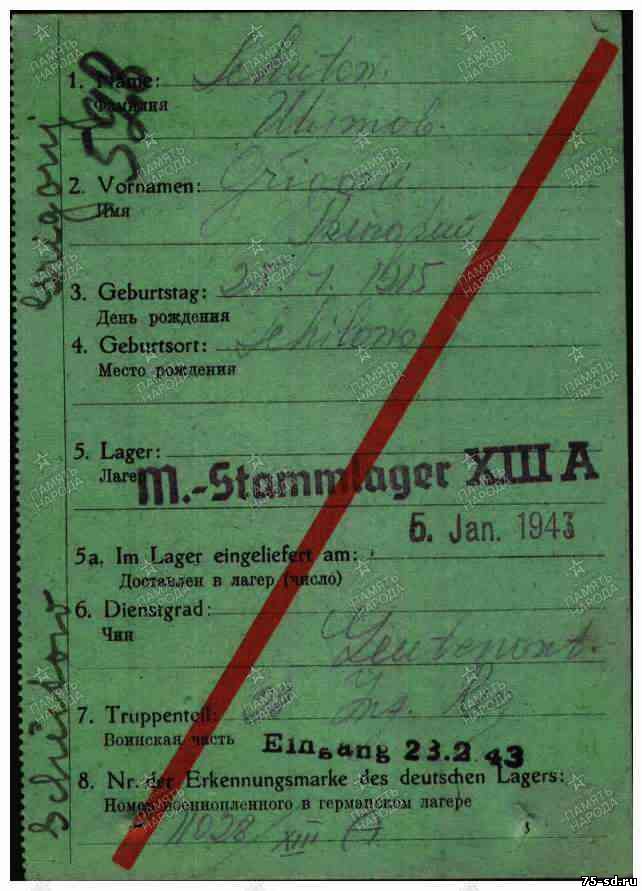 1. Name: Schitow
Фамилия
Шитов.
2. Vornamen: Grigori
Имя
Григорий
3. Geburtstag: 1. 1915
День рождения
4. Geburtsort: Schilowo
Место рождения
5. Lager:
Лагерь
M.-Stammlager XIII A
5. Jan. 1943
5a. Im Lager eingeliefert am:
Доставлен в лагерь (число)
6. Dienstgrad:
Чин
Leutenant.
7. Truppenteil:
Воинская часть
Eingang 23.2.43
8. Nr. der Erkennungsmarke des deutschen Lagers:
Номер военнопленного в германском лагере
11028/XIII
Schitow Grigori
ПАМЯТЬ НАРОДА
75-sd.ru